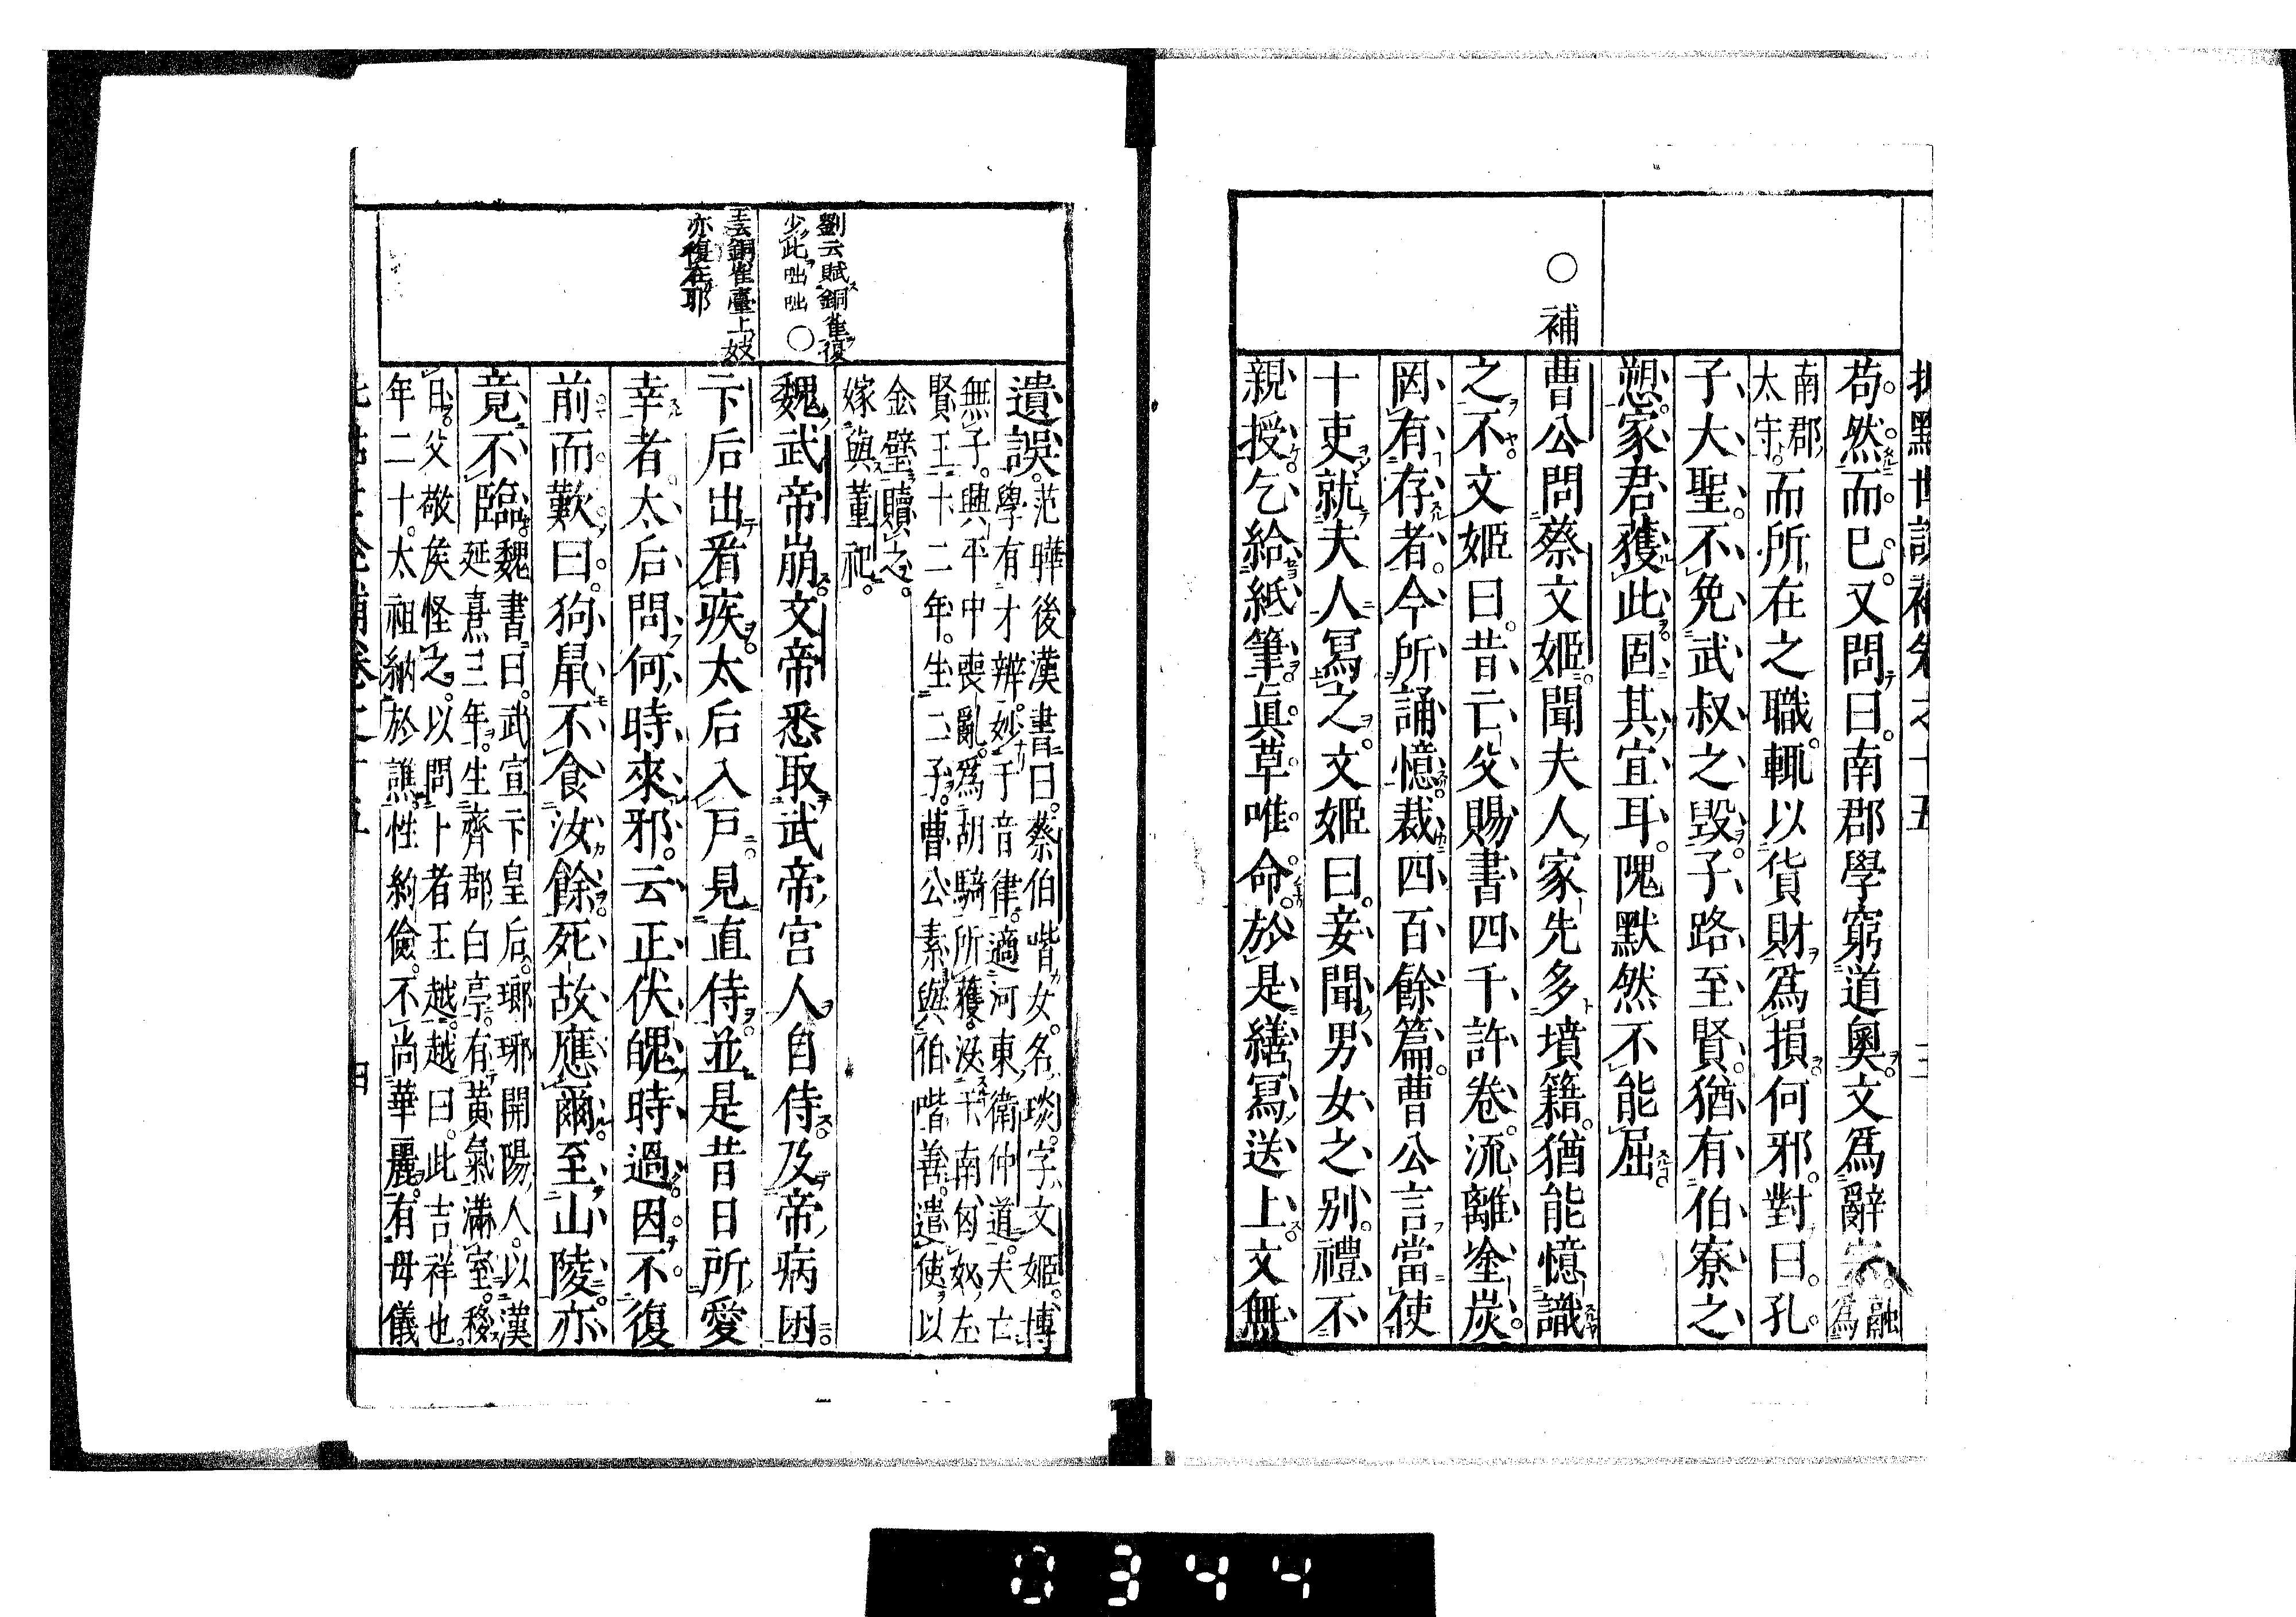 補
苟然而已又問曰南郡學窮道奧文爲辭 融爲
南郡太守而所在之職輒以貨財爲損何邪對曰孔
子大聖不免武叔之毀子路至賢猶有伯寮之
愬家君獲此固其宜耳隗默然不能屈
曹公問蔡文姬聞夫人家先多墳籍猶能憶識
之不文姬曰昔亡父賜書四千許卷流離塗炭
罔有存者今所誦憶裁四百餘篇曹公言當使
十吏就夫人寫之文姬曰妾聞男女之別禮不
親授乞給紙筆眞草唯命於是繕寫送上文無
劉云賦銅雀復
少此咄咄○
王云銅雀臺上妓
亦復在耶
遺誤范曄後漢書曰蔡伯喈女名琰字文姬博
學有才辨妙于音律適河東衛仲道夫亡
無子興平中喪亂爲胡騎所獲沒于南匈奴左
賢王十二年生二子曹公素與伯喈善遣使以
金璧贖之
嫁與董祀
魏武帝崩文帝悉取武帝宮人自侍及帝病困
卞后出看疾太后入戶見直侍並是昔日所愛
幸者太后問何時來邪云正伏魄時過因不復
前而歎曰狗鼠不食汝餘死故應爾至山陵亦
竟不臨魏書曰武宣卞皇后瑯琊開陽人以漢
延熹三年生齊郡白亭有黃氣滿室移
日父敬矦怪之以問卜者王越越曰此吉祥也
年二十太祖納於譙性約儉不尚華麗有母儀